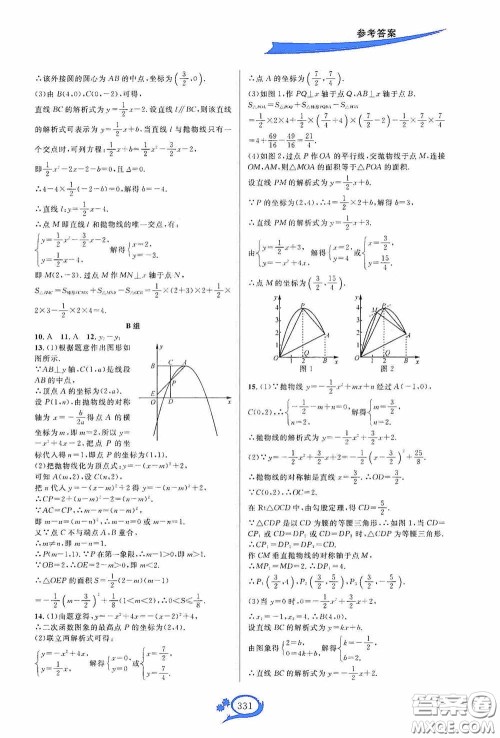 参考答案
∴该外接圆的圆心为AB的中点,坐标为(3/2,0).
(3)由B(4,0),C(0,-2),可得,
直线BC的解析式为y=1/2x-2.设直线l∥BC,则该直线
的解析式可表示为y=1/2x+b,当直线l与抛物线只有一
个交点时,可列方程:1/2x+b=1/2x²-3/2x-2,
即1/2x²-2x-2-b=0,且Δ=0.
∴4-4×1/2(-2-b)=0,∴b=-4.
∴直线l:y=1/2x-4.
∴点M即直线l和抛物线的唯一交点,有:
{y=1/2x²-3/2x-2, y=1/2x-4. 解得{x=2, y=-3.
即M(2,-3).过点M作MN⊥x轴于点N,
×2×3-1/2×2×4=4.
B组
10. A 11. A 12. y₂-y₁
13. (1)根据题意作出图形如
图所示.
∵AB⊥y轴,C(1,n)是线段
AB的中点,
∴顶点A的坐标为(2,a).
设P(1,n),由抛物线的对称
轴为x=-b/2a得点A的横
坐标为m,即m=2.所以y=
-x²+4x-2,把点P的坐
标代入得n=1.∴m=2,n=1.
(2)把抛物线化为顶点式:y=-(x-m)²+2,
可知A(m,2),设C(n,2),
把n代入y=-(x-m)²+2得y=-(n-m)²+2,
∴CP=2+(n-m)²-2=(n-m)².
∵AC=CP,∴m-n=(m-n)²,
即m-n=(m-n)²,即m-n=0或m-n=1.
又∵点C不与端点A,B重合,
∴m≠n,即m-n=1.
∴P(m-1,1).∵P在第一象限,∴m-1>0,即m>1.
∵OB=2,∴OE=2-m>0,即m<2.∴1<m<2.
14. (1)由题意得,y=-x²+4x=-(x-2)²+4,
∴二次函数图象的最高点P的坐标为(2,4).
(2)联立两解析式可得:
{y=-x²+4x, y=1/2x. 解得{x=0, y=0 或{x=7/2, y=7/4.
∴点A的坐标为(7/2,7/4).
(3)如图1,作PQ⊥x轴于点Q,AB⊥x轴于点B.
=1/2×2×4+1/2×(7/4+4)×(7/2-2)-1/2×7/2×7/4
=4+69/16-49/16=21/4.
(4)如图2,过点P作OA的平行线,交抛物线于点M,连接
OM,AM,则△MOA的面积等于△POA的面积.
设直线PM的解析式为y=1/2x+b.
∵P的坐标为(2,4),∴4=1/2×2+b,解得b=3.
∴直线PM的解析式为y=1/2x+3.
由{y=1/2x+3, y=-x²+4x. 解得{x=2, y=4 或{x=3/2, y=15/4.
∴点M的坐标为(3/2,15/4).
图1 图2
15. (1)∵抛物线y=-1/2x²+mx+n经过A(-1,0),
C(0,2),∴{-1/2-m+n=0, n=2. 解得{m=3/2, n=2.
∴抛物线的解析式为y=-1/2x²+3/2x+2.
(2)∵y=-1/2x²+3/2x+2=-1/2(x-3/2)²+25/8,
∴抛物线的对称轴为直线x=3/2.∴OD=3/2.
∵C(0,2),∴OC=2.
在Rt△OCD中,由勾股定理,得CD=5/2.
∵△CDP是以CD为腰的等腰三角形.∴如图1,当CD
=CP₁=DP₂=DP₃时,△CDP为等腰三角形,
∴CP₁=DP₂=DP₃=CD.
作CM垂直抛物线的对称轴于点M,
∴MP₁=MD=2.∴DP₁=4.
∴P₁(3/2,4),P₂(3/2,5/2),P₃(3/2,-5/2).
(3)当y=0时,0=-1/2x²+3/2x+2.
∴x₁=-1,x₂=4.∴B(4,0).
设直线BC的解析式为y=kx+b.
由图象得{2=b, 0=4k+b. 解得{k=-1/2, b=2.
∴直线BC的解析式为y=-1/2x+2.
331
答案圈